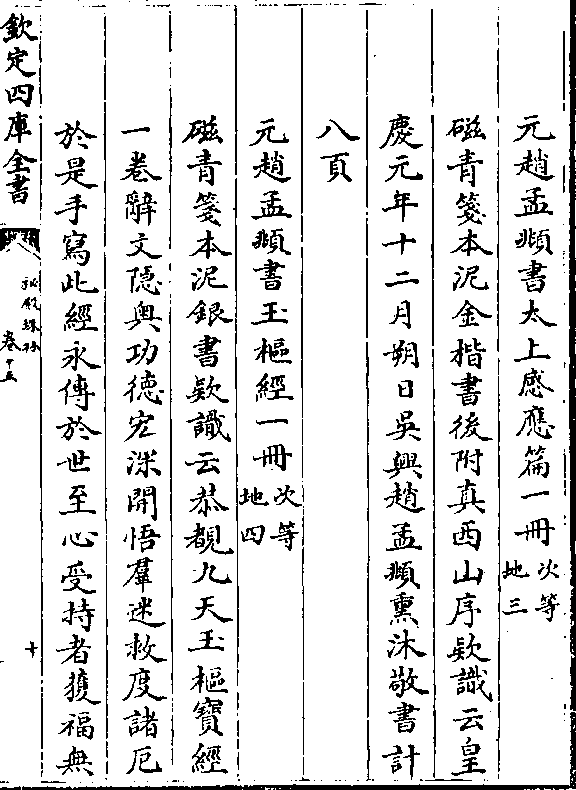 元趙孟頫書太上感應篇一冊次等地三
磁青箋本泥金楷書後附真西山序欵識云皇
慶元年十二月朔日吳興趙孟頫熏沐敬書計
八頁
元趙孟頫書玉樞經一冊次等地四
磁青箋本泥銀書欵識云恭覩九天玉樞寶經
一卷辭文隱奥功德宏深開悟羣迷救度諸厄
於是手寫此經永傳於世至心受持者獲福無
欽定四庫全書
秘殿珠林
卷十五
十